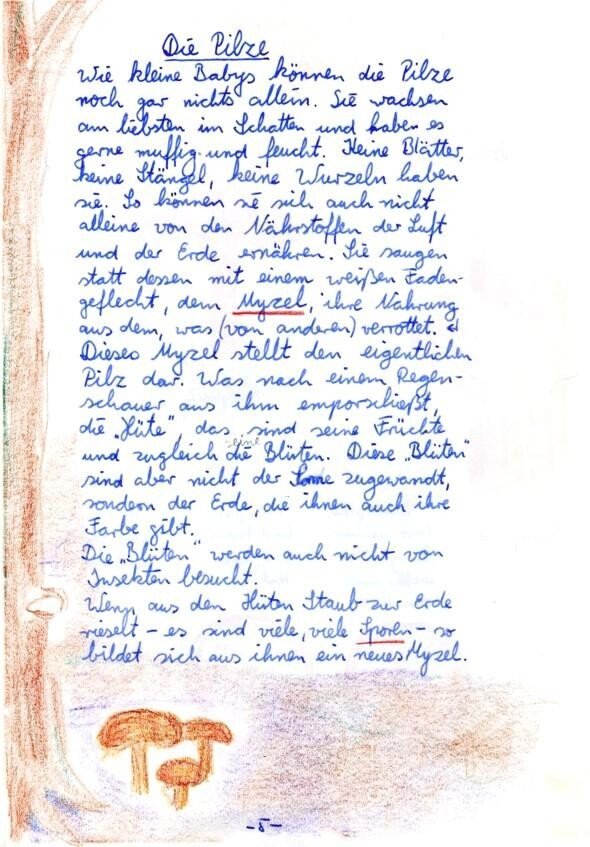 Die Pilze
Wie kleine Babys können die Pilze
noch gar nichts allein. Sie wachsen
am liebsten im Schatten und haben es
gerne muffig und feucht. Keine Blätter,
keine Stängel, keine Wurzeln haben
sie. So können sie sich auch nicht
alleine von den Nährstoffen der Luft
und der Erde ernähren. Sie saugen
statt dessen mit einem weißen Faden-
geflecht, dem Myzel, ihre Nahrung
aus dem, was (von anderen) verrottet.
Dieses Myzel stellt den eigentlichen
Pilz dar. Was nach einem Regen-
schauer aus ihm emporschießt,
die „Hüte", das sind seine Früchte
seine
und zugleich die Blüten. Diese „Blüten"
sind aber nicht der Sonne zugewandt,
sondern der Erde, die ihnen auch ihre
Farbe gibt.
Die „Blüten" werden auch nicht von
Insekten besucht.
Wenn aus den Hüten Staub zur Erde
rieselt – es sind viele, viele Sporen – so
bildet sich aus ihnen ein neues Myzel.
-5-